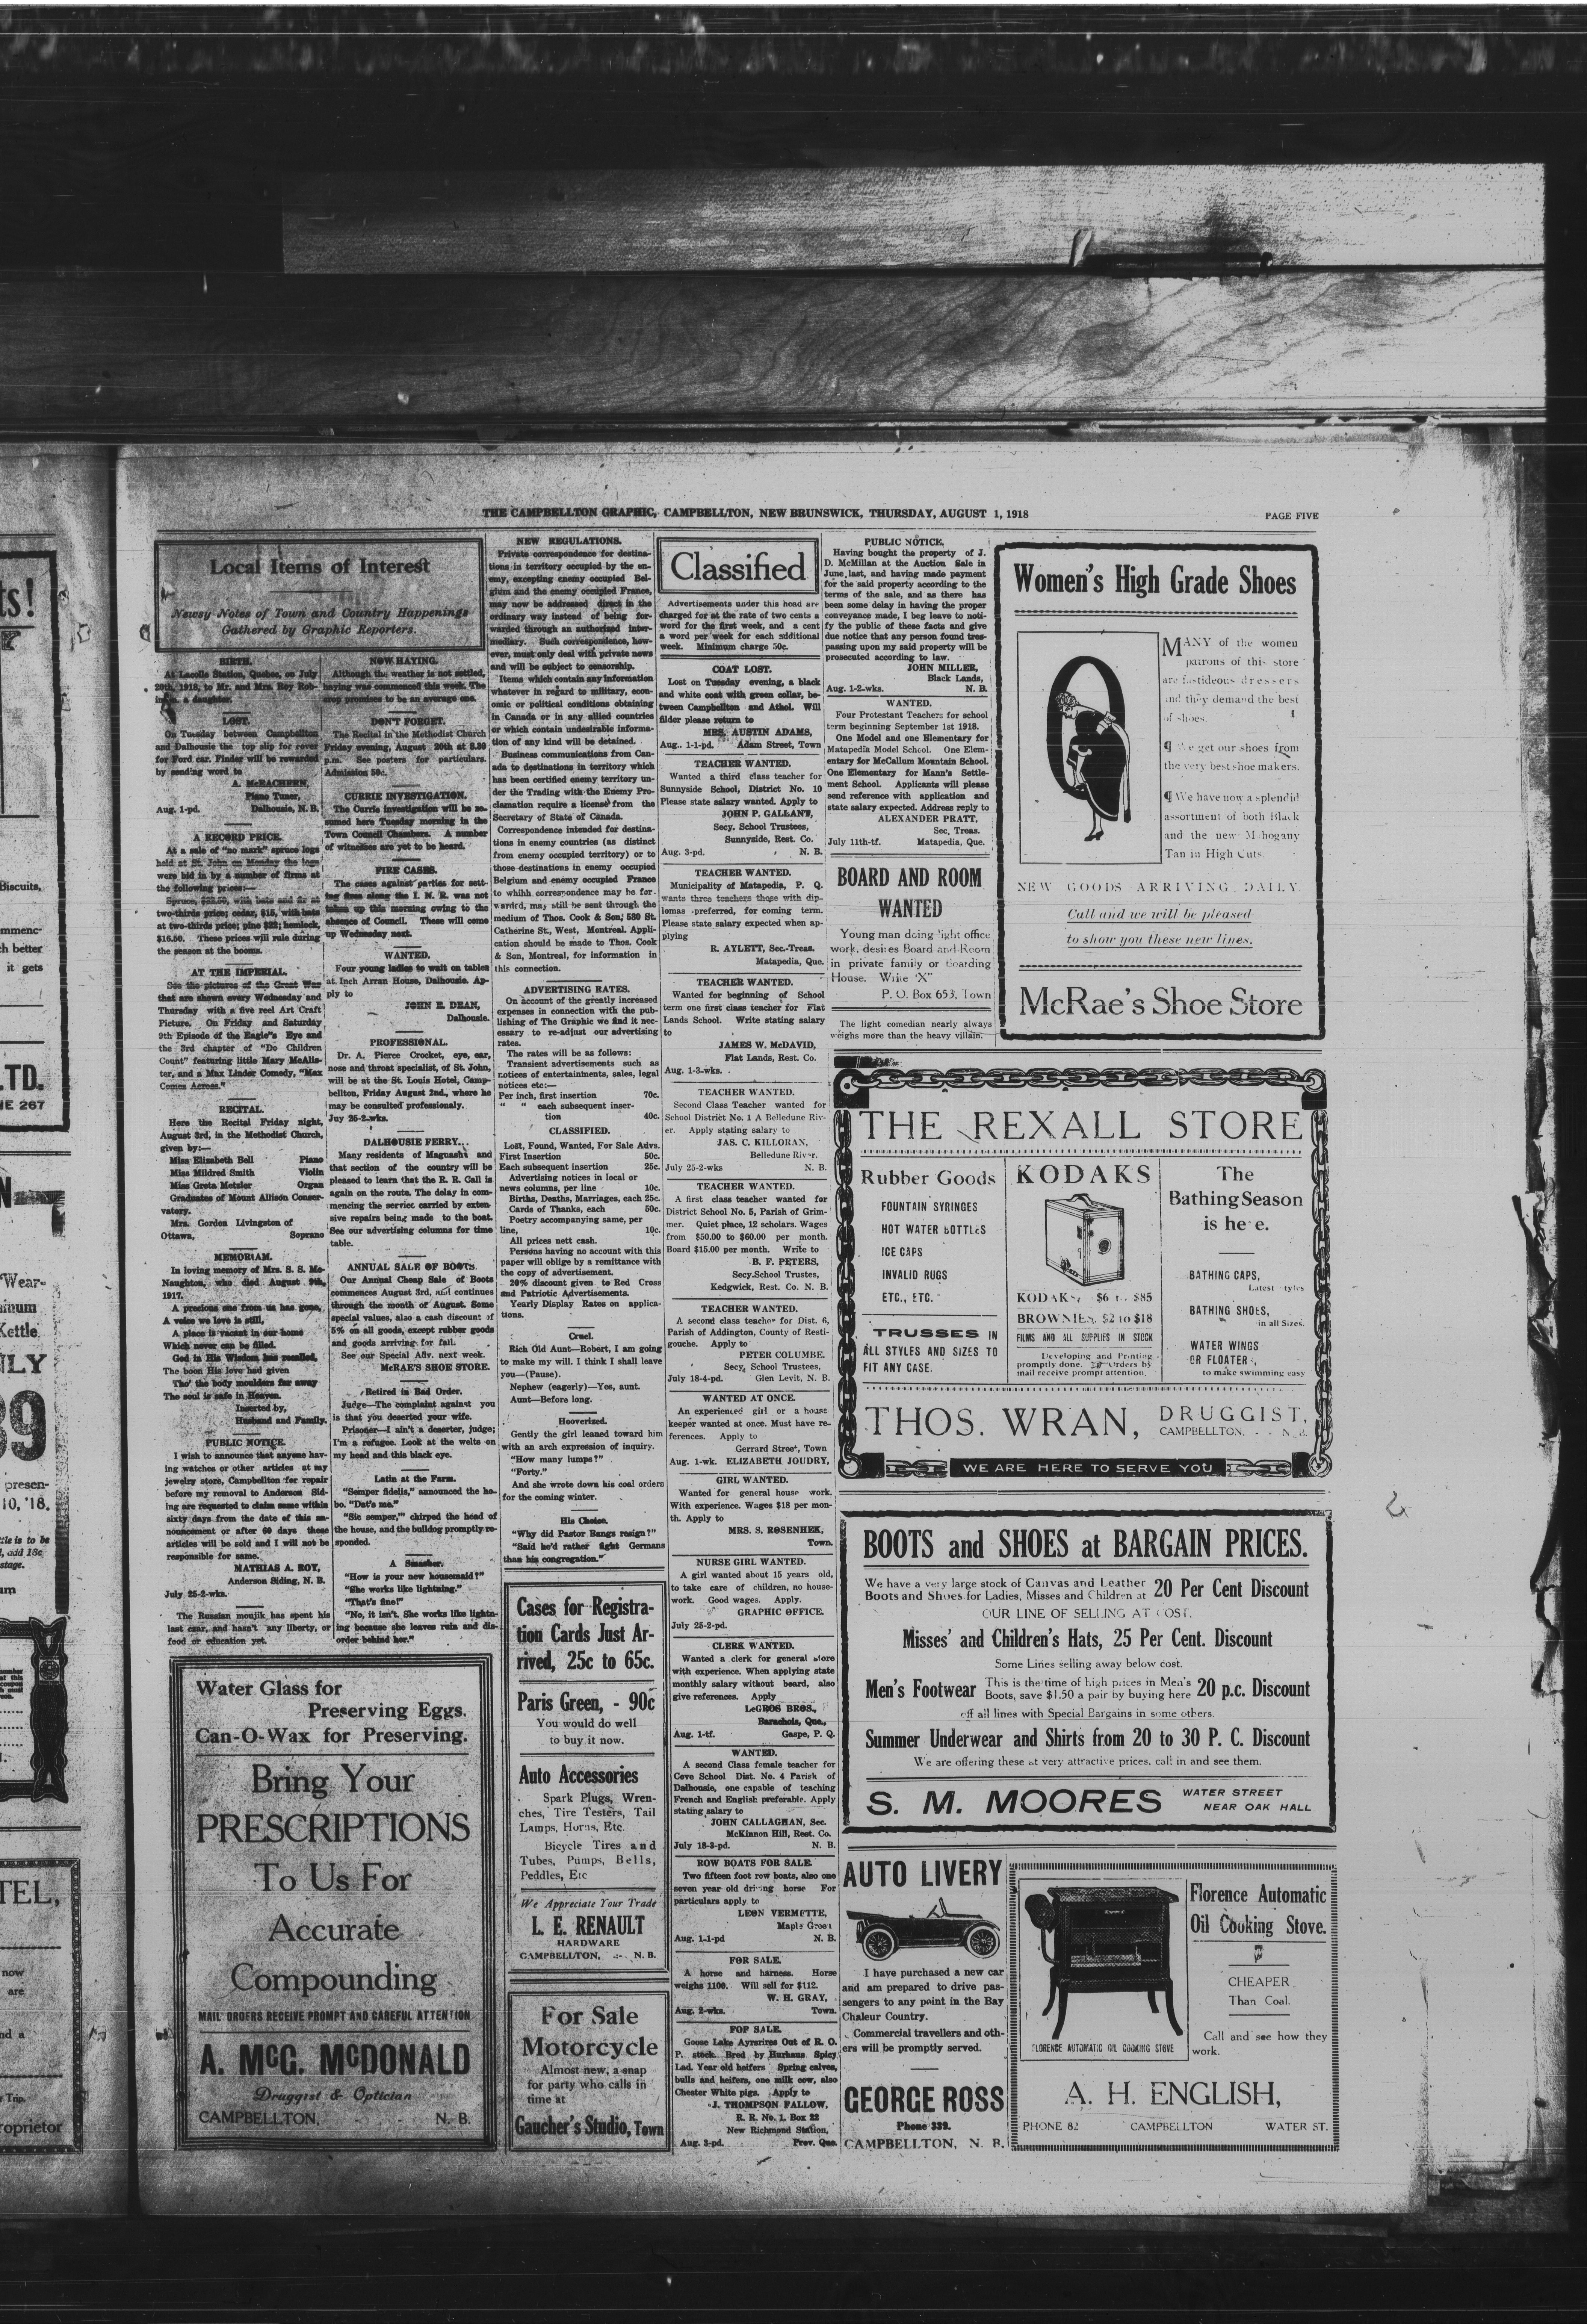 THE CAMPBELLTON GRAPHIC, CAMPBELLTON, NEW BRUNSWICK, THURSDAY, AUGUST 1, 1918
PAGE FIVE
Local Items of Interest
Newsy Notes of Town and Country Happenings
Gathered by Graphic Reporters.
BIRTH.
At Lacolle Station, Quebec, on July
20th, 1918, to Mr. and Mrs. Roy Rob-
a daughter.
LOST.
On Tuesday between Campbellton
and Dalhousie the top slip for cover
for Ford car. Finder will be rewarded
by sending word to
A. McEACHERN,
Piano Tuner,
Aug. 1-pd. Dalhousie, N. B.
A RECORD PRICE.
At a sale of "no mark" spruce logs
held at St. John on Monday the logs
were bid in by a number of firms at
the following prices:—
Spruce, with bats and fir at
two-thirds price; cedar, $15, with bats
at two-thirds price; pine $22; hemlock,
$16.50. These prices will rule during
the season at the booms.
AT THE IMPERIAL.
See the pictures of the Great War
that are shown every Wednesday and
Thursday with a five reel Art Craft
Picture. On Friday and Saturday
9th Episode of the Eagle"s Eye and
the 3rd chapter of "Do Children
Count" featuring little Mary McAlis-
ter, and a Max Linder Comedy, "Max
Comes Across."
RECITAL.
Here the Recital Friday night,
August 3rd, in the Methodist Church,
given by:—
Miss Elizabeth Bell Piano
Miss Mildred Smith Violin
Miss Greta Metzler Organ
Graduates of Mount Allison Conser-
vatory.
Mrs. Gordon Livingston of
Ottawa, Soprano
MEMORIAM.
In loving memory of Mrs. S. S. Mc-
Naughton, who died August 9th,
1917.
A precious one from us has gone,
A voice we love is still,
A place is vacant in our home
Which never can be filled.
God in His Wisdom has recalled,
The boon His love had given
Tho' the body moulders far away
The soul is safe in Heaven.
Inserted by,
Husband and Family.
PUBLIC NOTICE.
I wish to announce that anyone hav-
ing watches or other articles at my
jewelry store, Campbellton for repair
before my removal to Anderson Sid-
ing are requested to claim same within
sixty days from the date of this an-
nouncement or after 60 days these
articles will be sold and I will not be
responsible for same.
MATHIAS A. ROY,
Anderson Siding, N. B.
July 25-2-wks.
The Russian moujik has spent his
last czar, and hasn't any liberty, or
food or education yet.
NOW HAYING.
Although the weather is not settled,
haying was commenced this week. The
crop promises to be an average one.
DON'T FORGET.
The Recital in the Methodist Church
Friday evening, August 20th at 8.30
p.m. See posters for particulars.
Admission 50c.
CURRIE INVESTIGATION.
The Currie investigation will be re-
sumed here Tuesday morning in the
Town Council Chambers. A number
of witnesses are yet to be heard.
FIRE CASES.
The cases against parties for sett-
ing fires along the I. N. R. was not
taken up this morning owing to the
absence of Council. These will come
up Wednesday next.
WANTED.
Four young ladies to wait on tables
at Inch Arran House, Dalhousie. Ap-
ply to
JOHN E. DEAN,
Dalhousie.
PROFESSIONAL.
Dr. A. Pierce Crocket, eye, ear,
nose and throat specialist, of St. John,
will be at the St. Louis Hotel, Camp-
bellton, Friday August 2nd., where he
may be consulted professionaly.
Juy 25-2-wks.
DALHOUSIE FERRY.
Many residents of Maguasha and
that section of the country will be
pleased to learn that the R. R. Call is
again on the route. The delay in com-
mencing the service carried by exten-
sive repairs being made to the boat.
See our advertising columns for time
table.
ANNUAL SALE OF BOOTS.
Our Annual Cheap Sale of Boots
commences August 3rd, and continues
through the month of August. Some
special values, also a cash discount of
5% on all goods, except rubber goods
and goods arriving for fall.
See our Special Adv. next week.
McRAE'S SHOE STORE.
Retired in Bad Order.
Judge—The complaint against you
is that you deserted your wife.
Prisoner—I ain't a deserter, judge;
I'm a refugee. Look at the welts on
my head and this black eye.
Latin at the Farm.
"Semper fidelis," announced the ho-
bo. "Dat's me."
"Sic semper," chirped the head of
the house, and the bulldog promptly re-
sponded.
A Smasher.
"How is your new housemaid?"
"She works like lightning."
"That's fine!"
"No, it isn't. She works like lightn-
ing because she leaves ruin and dis-
order behind her."
Water Glass for
Preserving Eggs.
Can-O-Wax for Preserving.
Bring Your
PRESCRIPTIONS
To Us For
Accurate
Compounding
MAIL ORDERS RECEIVE PROMPT AND CAREFUL ATTENTION
A. McG. McDONALD
Druggist & Optician
CAMPBELLTON, - - N. B.
NEW REGULATIONS.
Private correspondence for destina-
tions in territory occupied by the en-
emy, excepting enemy occupied Bel-
gium and the enemy occupied France,
may now be addressed direct in the
ordinary way instead of being for-
warded through an authorized inter-
mediary. Such correspondence, how-
ever, must only deal with private news
and will be subject to censorship.
Items which contain any information
whatever in regard to military, econ-
omic or political conditions obtaining
in Canada or in any allied countries
or which contain undesirable informa-
tion of any kind will be detained.
Business communications from Can-
ada to destinations in territory which
has been certified enemy territory un-
der the Trading with the Enemy Pro-
clamation require a license from the
Secretary of State of Canada.
Correspondence intended for destina-
tions in enemy countries (as distinct
from enemy occupied territory) or to
those destinations in enemy occupied
Belgium and enemy occupied France
to whihh correspondence may be for-
warded, may still be sent through the
medium of Thos. Cook & Son, 530 St.
Catherine St., West, Montreal. Appli-
cation should be made to Thos. Cook
& Son, Montreal, for information in
this connection.
ADVERTISING RATES.
On account of the greatly increased
expenses in connection with the pub-
lishing of The Graphic we find it nec-
essary to re-adjust our advertising
rates.
The rates will be as follows:
Transient advertisements such as
notices of entertaintments, sales, legal
notices etc:—
Per inch, first insertion 70c.
" " each subsequent inser-
tion 40c.
CLASSIFIED.
Lost, Found, Wanted, For Sale Advs.
First Insertion 50c.
Each subsequent insertion 25c.
Advertising notices in local or
news columns, per line 10c.
Births, Deaths, Marriages, each 25c.
Cards of Thanks, each 50c.
Poetry accompanying same, per
line, 10c.
All prices nett cash.
Persons having no account with this
paper will oblige by a remittance with
the copy of advertisement.
20% discount given to Red Cross
and Patriotic Advertisements.
Yearly Display Rates on applica-
tions.
Cruel.
Rich Old Aunt—Robert, I am going
to make my will. I think I shall leave
you—(Pause).
Nephew (eagerly)—Yes, aunt.
Aunt—Before long.
Hooverized.
Gently the girl leaned toward him
with an arch expression of inquiry.
"How many lumps?"
"Forty."
And she wrote down his coal orders
for the coming winter.
His Choice.
"Why did Pastor Bangs resign?"
"Said he'd rather fight Germans
than his congregation."
Cases for Registra-
tion Cards Just Ar-
rived, 25c to 65c.
Paris Green, - 90c
You would do well
to buy it now.
Auto Accessories
Spark Plugs, Wren-
ches, Tire Testers, Tail
Lamps, Horns, Etc.
Bicycle Tires and
Tubes, Pumps, Bells,
Peddles, Etc
We Appreciate Your Trade
L. E. RENAULT
HARDWARE
CAMPBELLTON, -:- N. B.
For Sale
Motorcycle
Almost new, a snap
for party who calls in
time at
Gaucher's Studio, Town
Classified
Advertisements under this head are
charged for at the rate of two cents a
word for the first week, and a cent
a word per week for each additional
week. Minimum charge 50c.
COAT LOST.
Lost on Tuesday evening, a black
and white coat with green collar, be-
tween Campbellton and Athol. Will
filder please return to
MRS. AUSTIN ADAMS,
Aug. 1-1-pd. Adam Street, Town
TEACHER WANTED.
Wanted a third class teacher for
Sunnyside School, District No. 10
Please state salary wanted. Apply to
JOHN P. GALLANT,
Secy. School Trustees,
Sunnyside, Rest. Co.
Aug. 3-pd. N. B.
TEACHER WANTED.
Municipality of Matapedia, P. Q.
wants three teachers those with dip-
lomas preferred, for coming term.
Please state salary expected when ap-
plying
R. AYLETT, Sec.-Treas.
Matapedia, Que.
TEACHER WANTED.
Wanted for beginning of School
term one first class teacher for Flat
Lands School. Write stating salary
to
JAMES W. McDAVID,
Flat Lands, Rest. Co.
Aug. 1-3-wks.
TEACHER WANTED.
Second Class Teacher wanted for
School District No. 1 A Belledune Riv-
er. Apply stating salary to
JAS. C. KILLORAN,
Belledune River.
July 25-2-wks N. B.
TEACHER WANTED.
A first class teacher wanted for
District School No. 5, Parish of Grim-
mer. Quiet place, 12 scholars. Wages
from $50.00 to $60.00 per month.
Board $15.00 per month. Write to
B. F. PETERS,
Secy.School Trustes,
Kedgwick, Rest. Co. N. B.
TEACHER WANTED.
A second class teacher for Dist. 6,
Parish of Addington, County of Resti-
gouche. Apply to
PETER COLUMBE.
Secy. School Trustees,
July 18-4-pd. Glen Levit, N. B.
WANTED AT ONCE.
An experienced girl or a house
keeper wanted at once. Must have re-
ferences. Apply to
Gerrard Street, Town
Aug. 1-wk. ELIZABETH JOUDRY,
GIRL WANTED.
Wanted for general house work.
With experience. Wages $18 per mon-
th. Apply to
MRS. S. ROSENHEK,
Town.
NURSE GIRL WANTED.
A girl wanted about 15 years old,
to take care of children, no house-
work. Good wages. Apply.
GRAPHIC OFFICE.
July 25-2-pd.
CLERK WANTED.
Wanted a clerk for general store
with experience. When applying state
monthly salary without board, also
give references. Apply
LeGROS BROS.,
Barachois, Que.,
Aug. 1-tf. Gaspe, P. Q.
WANTED.
A second Class female teacher for
Cove School Dist. No. 4 Parish of
Dalhousie, one capable of teaching
French and English preferable. Apply
stating salary to
JOHN CALLAGHAN, Sec.
McKinnon Hill, Rest. Co.
July 18-3-pd. N. B.
ROW BOATS FOR SALE.
Two fifteen foot row boats, also one
seven year old driving horse For
particulars apply to
LEON VERMETTE,
Maple Green
Aug. 1-1-pd N. B.
FOR SALE.
A horse and harness. Horse
weighs 1100. Will sell for $112.
W. H. GRAY,
Aug. 2-wks. Town.
FOP SALE.
Goose Lake Ayrsrires Out of R. O.
P. stock. Bred by Hurhaus Spicy
Lad. Year old heifers Spring calves,
bulls and heifers, one milk cow, also
Chester White pigs. Apply to
J. THOMPSON FALLOW,
R. R. No. 1. Box 22
New Richmond Station,
Aug. 3-pd. Prov. Que.
PUBLIC NOTICE.
Having bought the property of J.
D. McMillan at the Auction Sale in
June last, and having made payment
for the said property according to the
terms of the sale, and as there has
been some delay in having the proper
conveyance made, I beg leave to noti-
fy the public of these facts and give
due notice that any person found tres-
passing upon my said property will be
prosecuted according to law.
JOHN MILLER,
Black Lands,
Aug. 1-2-wks. N. B.
WANTED.
Four Protestant Teachers for school
term beginning September 1st 1918.
One Model and one Hlementary for
Matapedia Model School. One Elem-
entary for McCallum Mountain School.
One Elementary for Mann's Settle-
ment School. Applicants will please
send reference with application and
state salary expected. Address reply to
ALEXANDER PRATT,
Sec, Treas.
July 11th-tf. Matapedia, Que.
BOARD AND ROOM
WANTED
Young man doing light office
work, desires Board and Room
in private family or Boarding
House. Write "X"
P. O. Box 653, Town
The light comedian nearly always
weighs more than the heavy villain.
Women's High Grade Shoes
MANY of the women
patrons of this store
are fastideous dressers
and they demand the best
of shoes.
¶ We get our shoes from
the very best shoe makers.
¶ We have now a splendid
assortment of both Black
and the new Mahogany
Tan in High Cuts.
NEW GOODS ARRIVING DAILY
Call and we will be pleased
to show you these new lines.
McRae's Shoe Store
THE REXALL STORE
Rubber Goods
FOUNTAIN SYRINGES
HOT WATER BOTTLES
ICE CAPS
INVALID RUGS
ETC., ETC.
TRUSSES IN
ALL STYLES AND SIZES TO
FIT ANY CASE.
KODAKS
KODAKS, $6 to $85
BROWNIES, $2 to $18
FILMS AND ALL SUPPLIES IN STOCK
Developing and Printing
promptly done. Orders by
mail receive prompt attention.
The
Bathing Season
is he e.
BATHING CAPS,
Latest tyles
BATHING SHOES,
in all Sizes.
WATER WINGS
OR FLOATERS,
to make swimming easy
THOS. WRAN, DRUGGIST,
CAMPBELLTON, - - N. B.
WE ARE HERE TO SERVE YOU
BOOTS and SHOES at BARGAIN PRICES.
We have a very large stock of Canvas and Leather
Boots and Shoes for Ladies, Misses and Children at 20 Per Cent Discount
OUR LINE OF SELLING AT COST.
Misses' and Children's Hats, 25 Per Cent. Discount
Some Lines selling away below cost.
Men's Footwear This is the time of high prices in Men's
Boots, save $1.50 a pair by buying here 20 p.c. Discount
off all lines with Special Bargains in some others.
Summer Underwear and Shirts from 20 to 30 P. C. Discount
We are offering these at very attractive prices, call in and see them.
S. M. MOORES WATER STREET
NEAR OAK HALL
AUTO LIVERY
I have purchased a new car
and am prepared to drive pas-
sengers to any point in the Bay
Chaleur Country.
Commercial travellers and oth-
ers will be promptly served.
GEORGE ROSS
Phone 339.
CAMPBELLTON, N. B.
FLORENCE AUTOMATIC OIL COOKING STOVE
Florence Automatic
Oil Cooking Stove.
CHEAPER
Than Coal.
Call and see how they
work.
A. H. ENGLISH,
PHONE 82 CAMPBELLTON WATER ST.